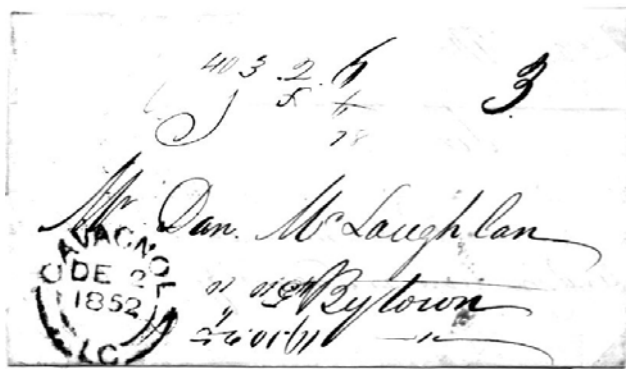 403 2 6
3
5
78
Mr Dan. McLaughlan
Bytown
CAVAGNOL
DE 2
1852
LC